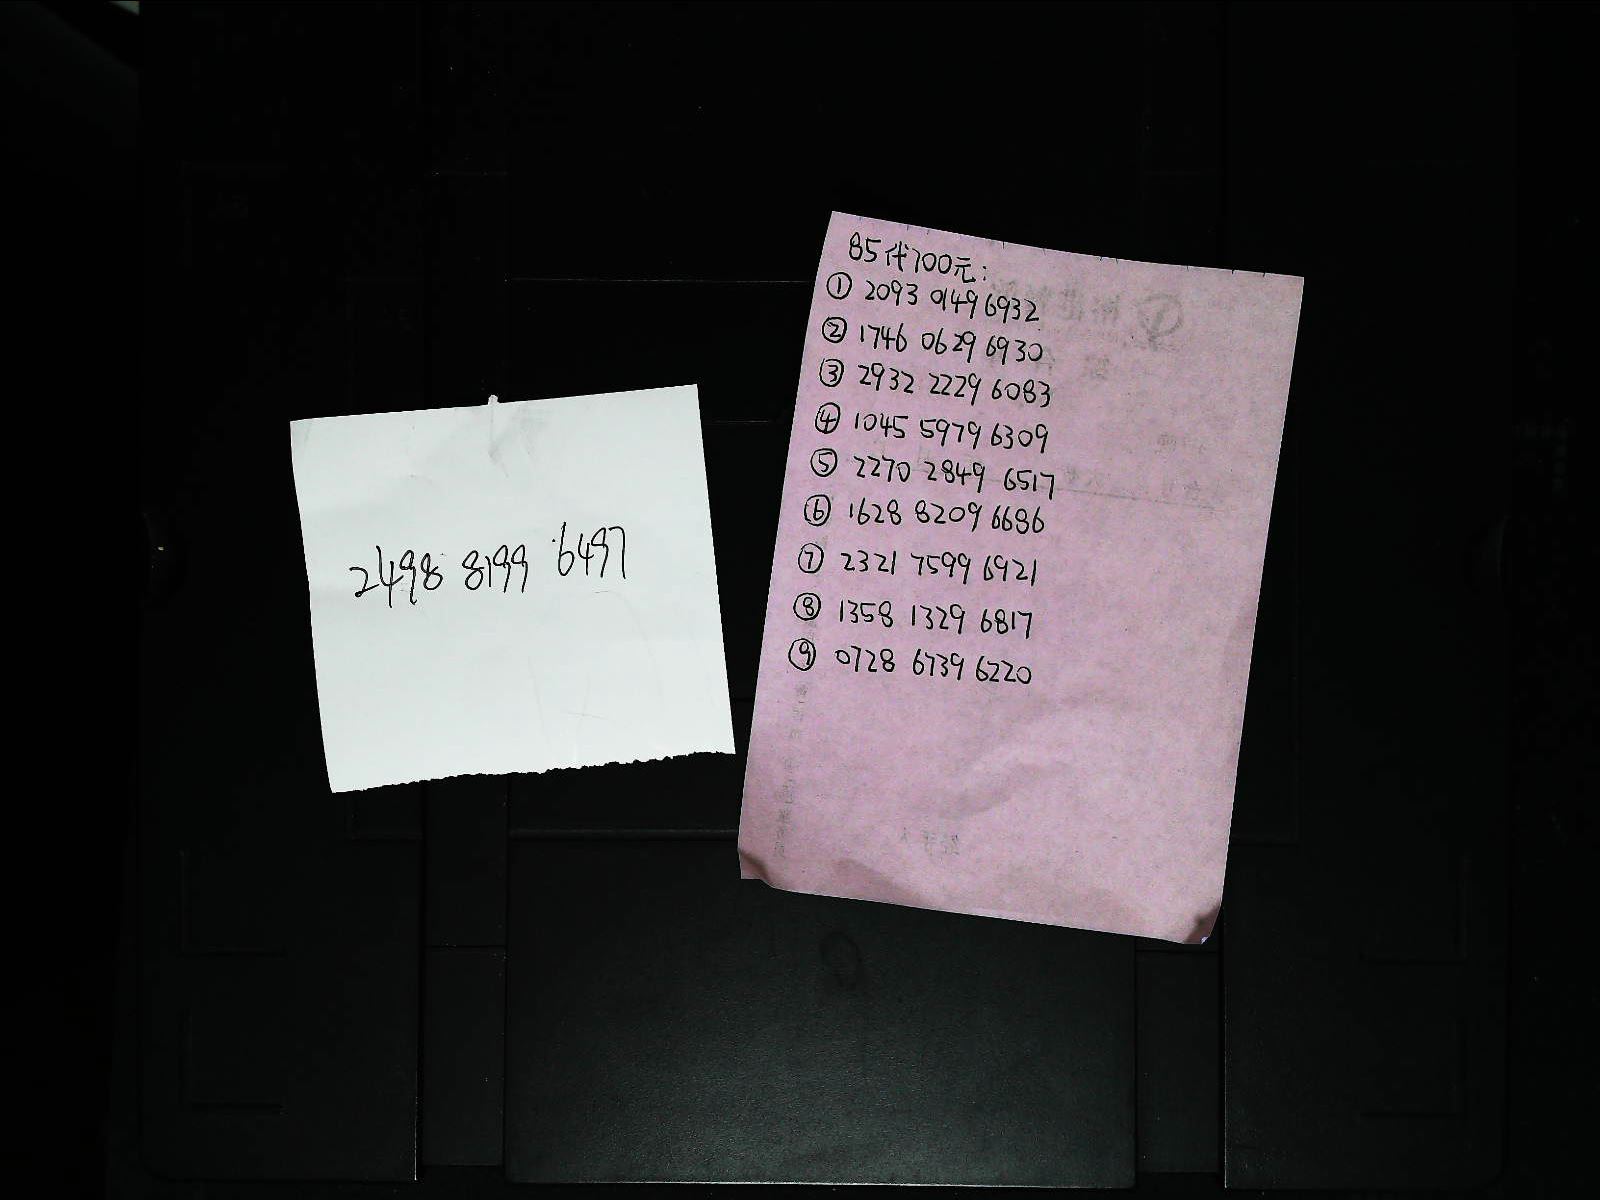 2498 8199 6497
85代700元:
① 2093 0149 6932
② 1746 0629 6930
③ 2932 2229 6083
④ 1045 5979 6309
⑤ 2270 2849 6517
⑥ 1628 8209 6686
⑦ 2321 7599 6921
⑧ 1358 1329 6817
⑨ 0728 6739 6220